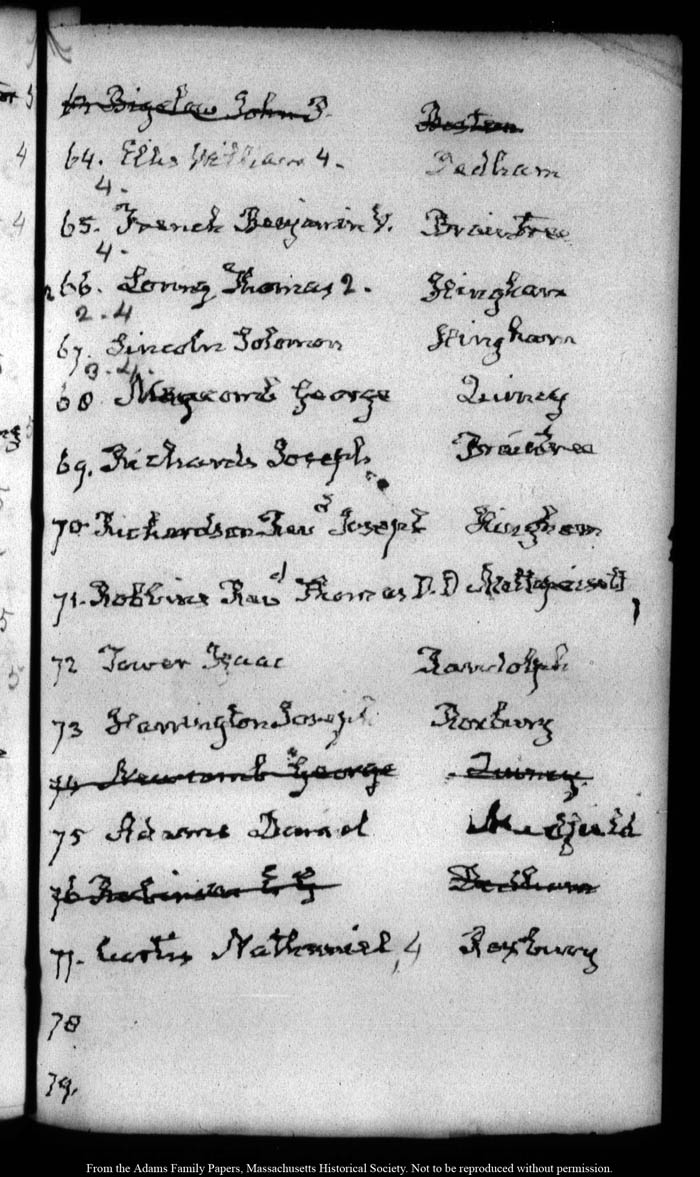 63 Bigelow John P. Boston
64. Ellis William 4. Dedham
4.
65. French Benjamin V. Braintree
4.
66. Loring Thomas 2. Hingham
2. 4
67. Lincoln Solomon Hingham
3. 4.
68 Newcomb George Quincy
69. Richards Joseph Braintree
70 Richardson Revd Joseph Hingham
71. Robbins Revd Thomas D.D Mattapoisett
72 Tower Isaac Randolph
73 Harrington Joseph Roxbury
74 Newcomb George Quincy
75 Adams Daniel Medfield
76 Robinson Dedham
77. Curtis Nathaniel, 4 Roxbury
78
79.
From the Adams Family Papers, Massachusetts Historical Society. Not to be reproduced without permission.